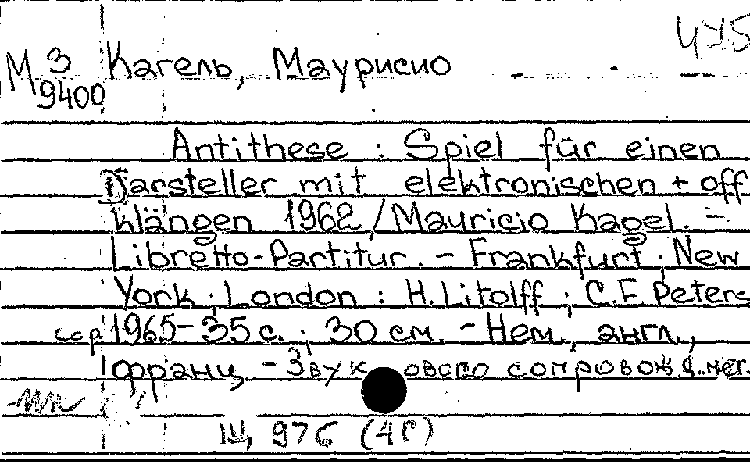 475
М 3 Кагель, Маурисио
9400
Antithese : Spiel für einen
Darsteller mit elektronischen + öff
Klängen 1962 / Mauricio Kagel. –
Libretto-Partitur. – Frankfurt ; New
York ; London : H. Litolff ; C.F. Peters
1965 – 35 с. ; 30 см. – Нем., англ.,
франц. – Звукового сопровожд. нет.
976 (4с)